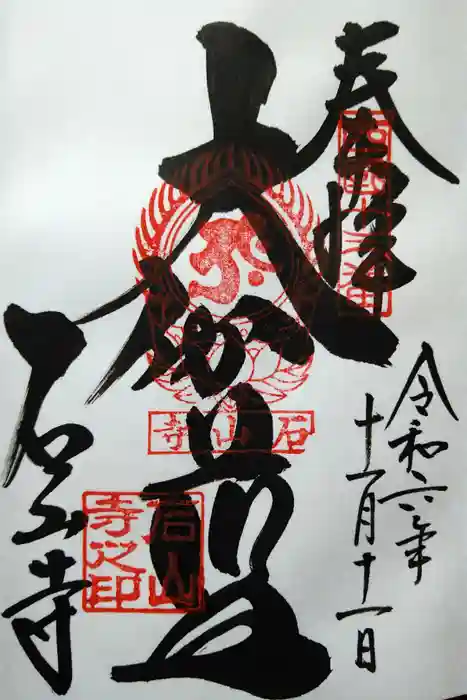 奉拝
令和六年
十一月十一日
大伽藍
石山寺
石山寺
石山寺之印